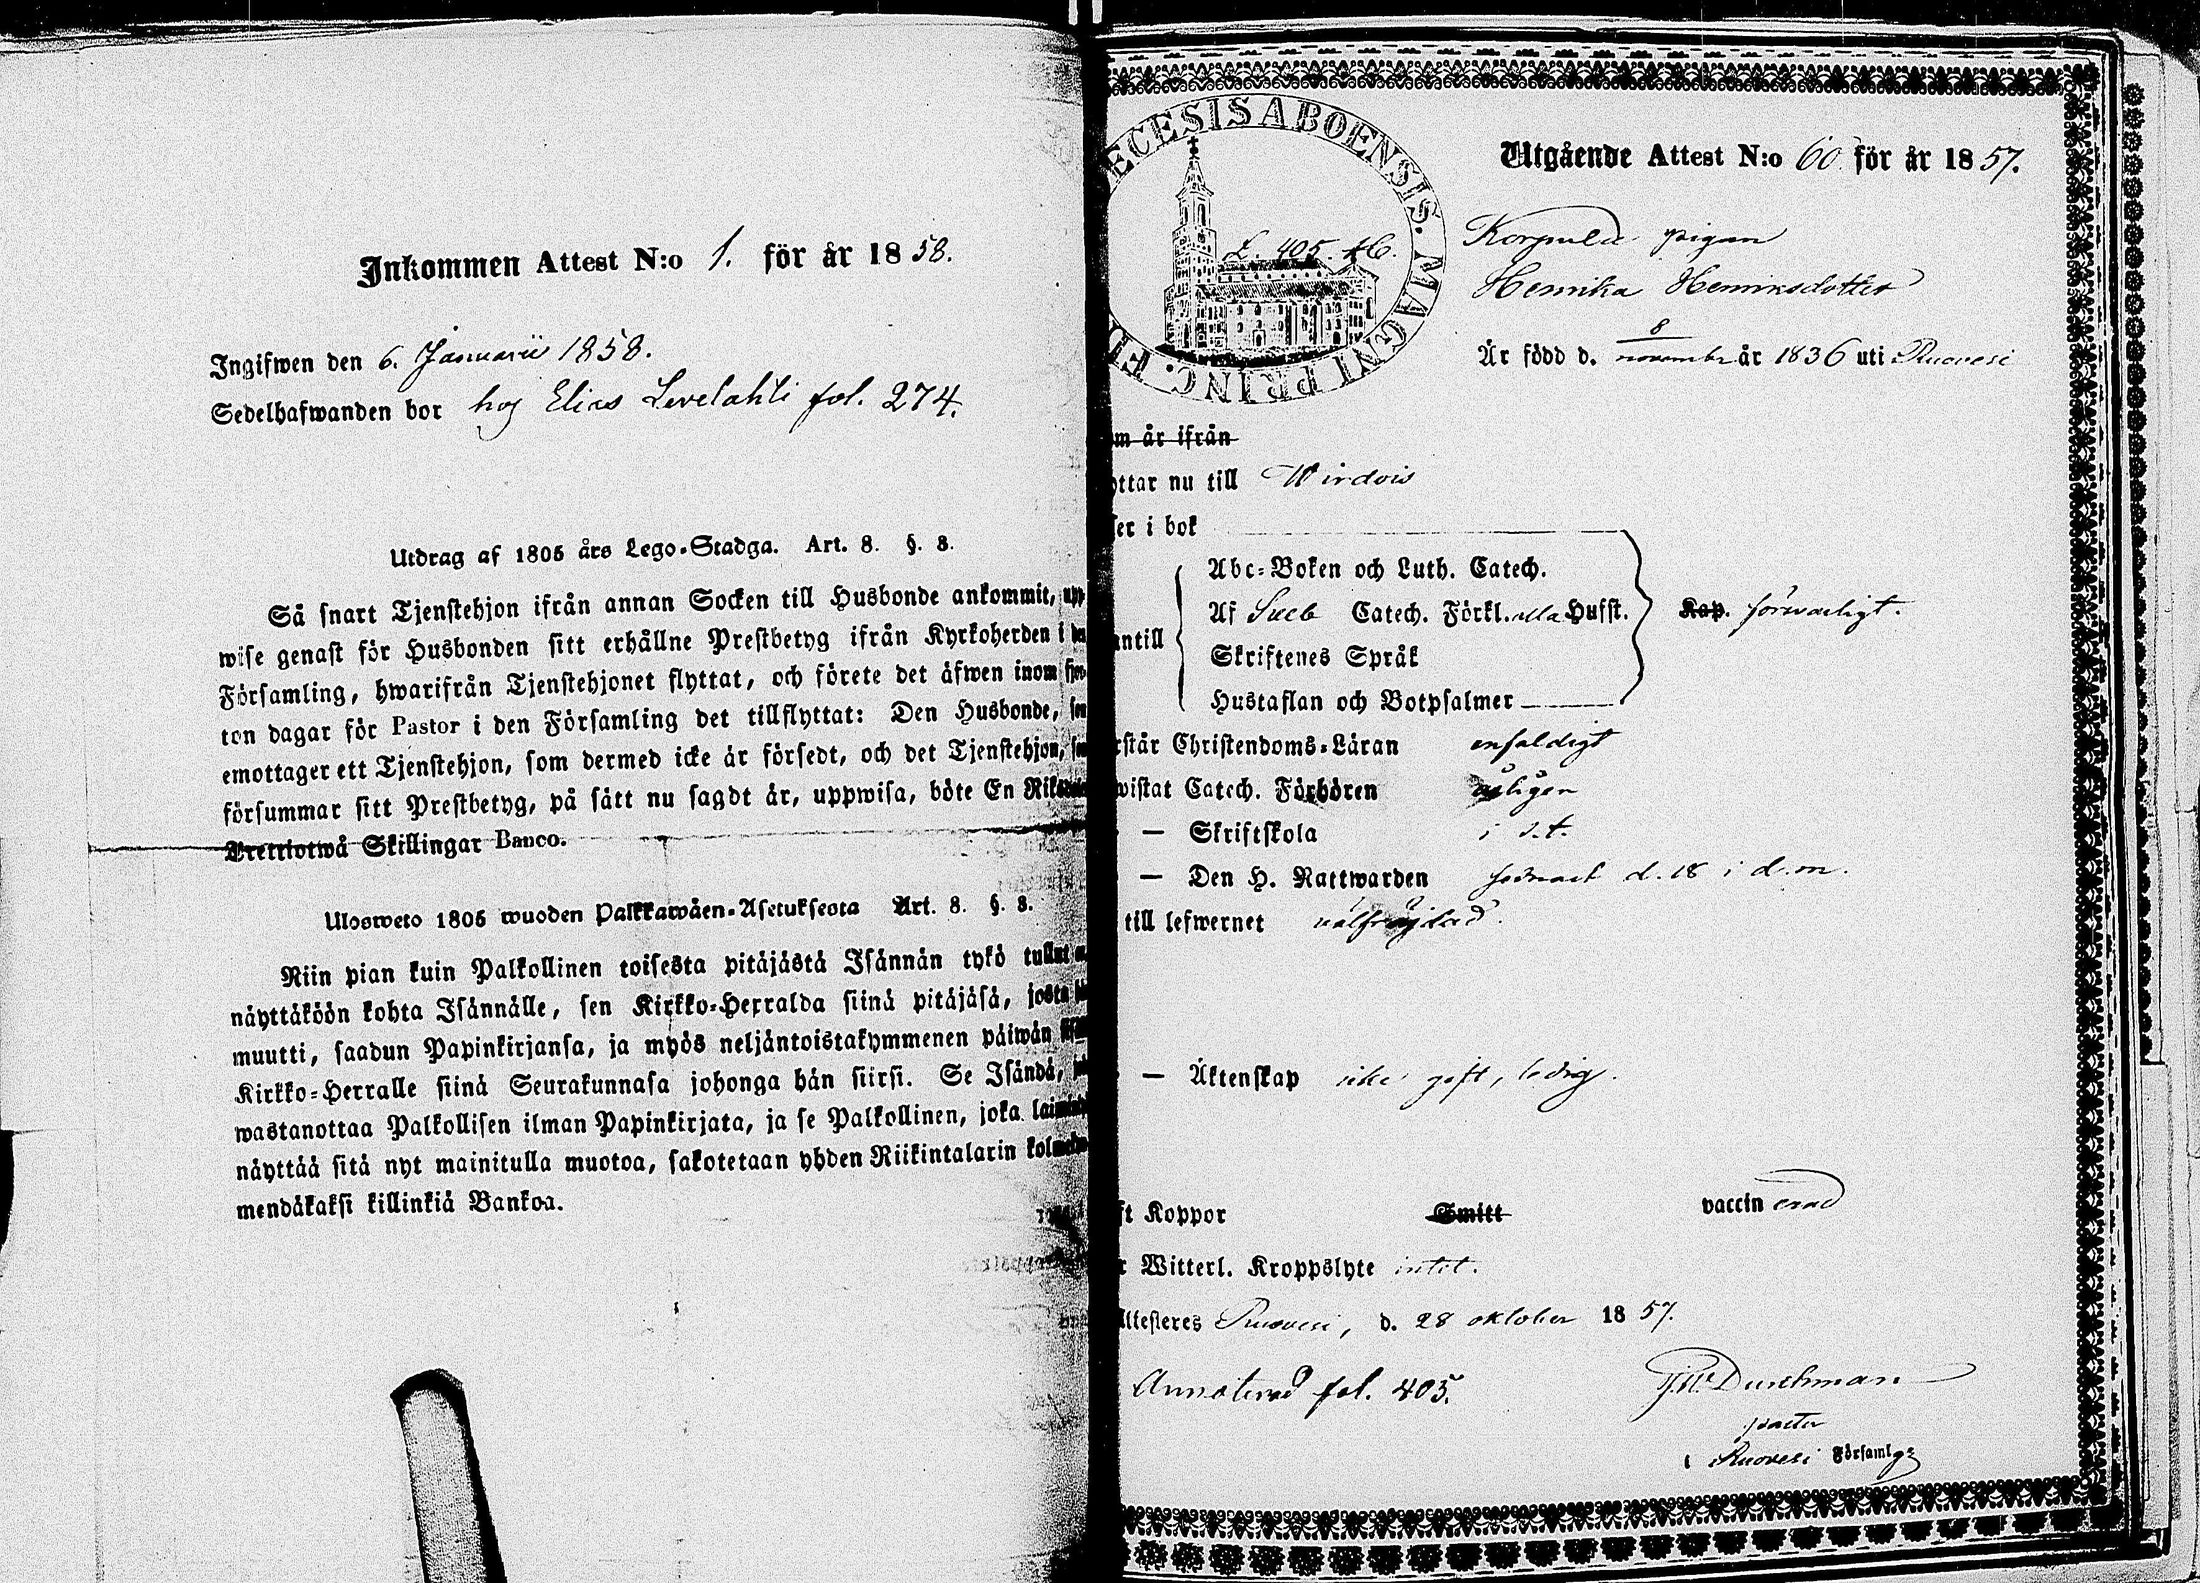 Inkommen Attest N:o 1. för år 1858.
Ingifwen den 6. Januarii 1858.
Sedelhafwanden bor hos Elias Levelahti fol. 274.
Utdrag af 1805 års Lego-Stadga. Art. 8. §. 8.
Så snart Tjenstehjon ifrån annan Socken till Husbonde ankommit, upp-
wise genast för Husbonden sitt erhållne Prestbetyg ifrån Kyrkoherden i den
Församling, hwarifrån Tjenstehjonet flyttat, och förete det äfwen inom fjor-
ton dagar för Pastor i den Församling det tillflyttat: Den Husbonde, som
emottager ett Tjenstehjon, som dermed icke är försedt, och det Tjenstehjon, som
försummar sitt Prestbetyg, på sätt nu sagdt är, uppwisa, böte En Riksdaler
Trettiotwå Skillingar Banco.
Ulosweto 1805 wuoden Palkkawäen-Asetuksesta Art. 8. §. 8.
Niin pian kuin Palkollinen toisesta pitäjästä Isännän tykö tullut
näyttäköön kohta Isännälle, sen Kirkko-Herralda siinä pitäjäsä, josta
muutti, saadun Papinkirjansa, ja myös neljäntoistakymmenen päiwän
Kirkko-Herralle siinä Seurakunnasa johonga hän siirsi. Se Isändä,
wastanottaa Palkollisen ilman Papinkirjata, ja se Palkollinen, joka
näyttää sitä nyt mainitulla muotoa, sakotetaan yhden Riikintalarin
mendäkaksi killinkiä Bankoa.
ECESIS ABOENSIS. MAGNI PRINC. F
405.
Utgående Attest N:o 60 för år 1857.
Korpula pigan
Henrika Henriksdotter
Är född d. 8 november år 1836 uti Ruovesi
m är ifrån
ottar nu till Wirdois
ser i bok
Abc-Boken och Luth. Catech.
Af Sveb Catech. Förkl. alla Husst. Kap. försvarligt.
antill
Skriftenes Språk
Hustaflan och Botpsalmer
rstår Christendoms-Läran enfaldigt
wistat Catech. Förhören årligen
— Skriftskola i s.t.
— Den H. Nattwarden sednast d. 18 i d.m.
till lefwernet välfräjdad.
— Äktenskap icke gift, ledig.
ft Koppor Smitt vaccinerad
r Witterl. Kroppslyte intet.
Attesteres Ruovesi, d. 28 oktober 1857.
Annoterad fol. 405.
Durchman
pastor
i Ruovesi Församlg: